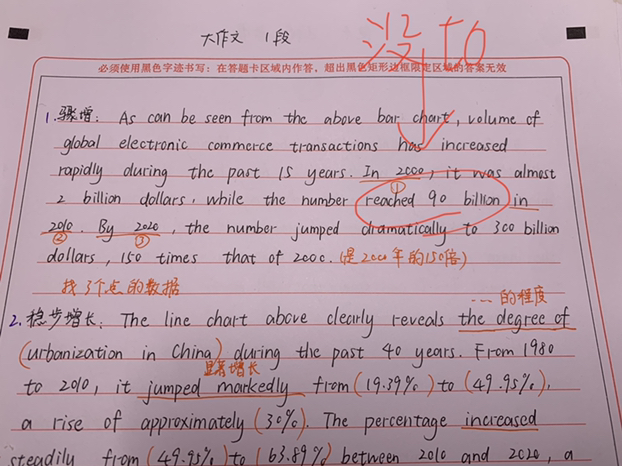 大作文 1段
没 to
必须使用黑色字迹书写:在答题卡区域内作答,超出黑色矩形边框限定区域的答案无效
1.骤增: As can be seen from the above bar chart, volume of
global electronic commerce transactions has increased
rapidly during the past 15 years. In 2000, it was almost
①
2 billion dollars, while the number reached 90 billion in
2010. By 2020, the number jumped dramatically to 300 billion
② ③
dollars, 150 times that of 2000. (是2000年的150倍)
找3个点的数据
……的程度
2.稳步增长: The line chart above clearly reveals the degree of
(urbanization in China) during the past 40 years. From 1980
显著增长
to 2010, it jumped markedly from (19.39%) to (49.95%),
a rise of approximately (30%). The percentage increased
steadily from (49.95%) to (63.89%) between 2010 and 2020, a